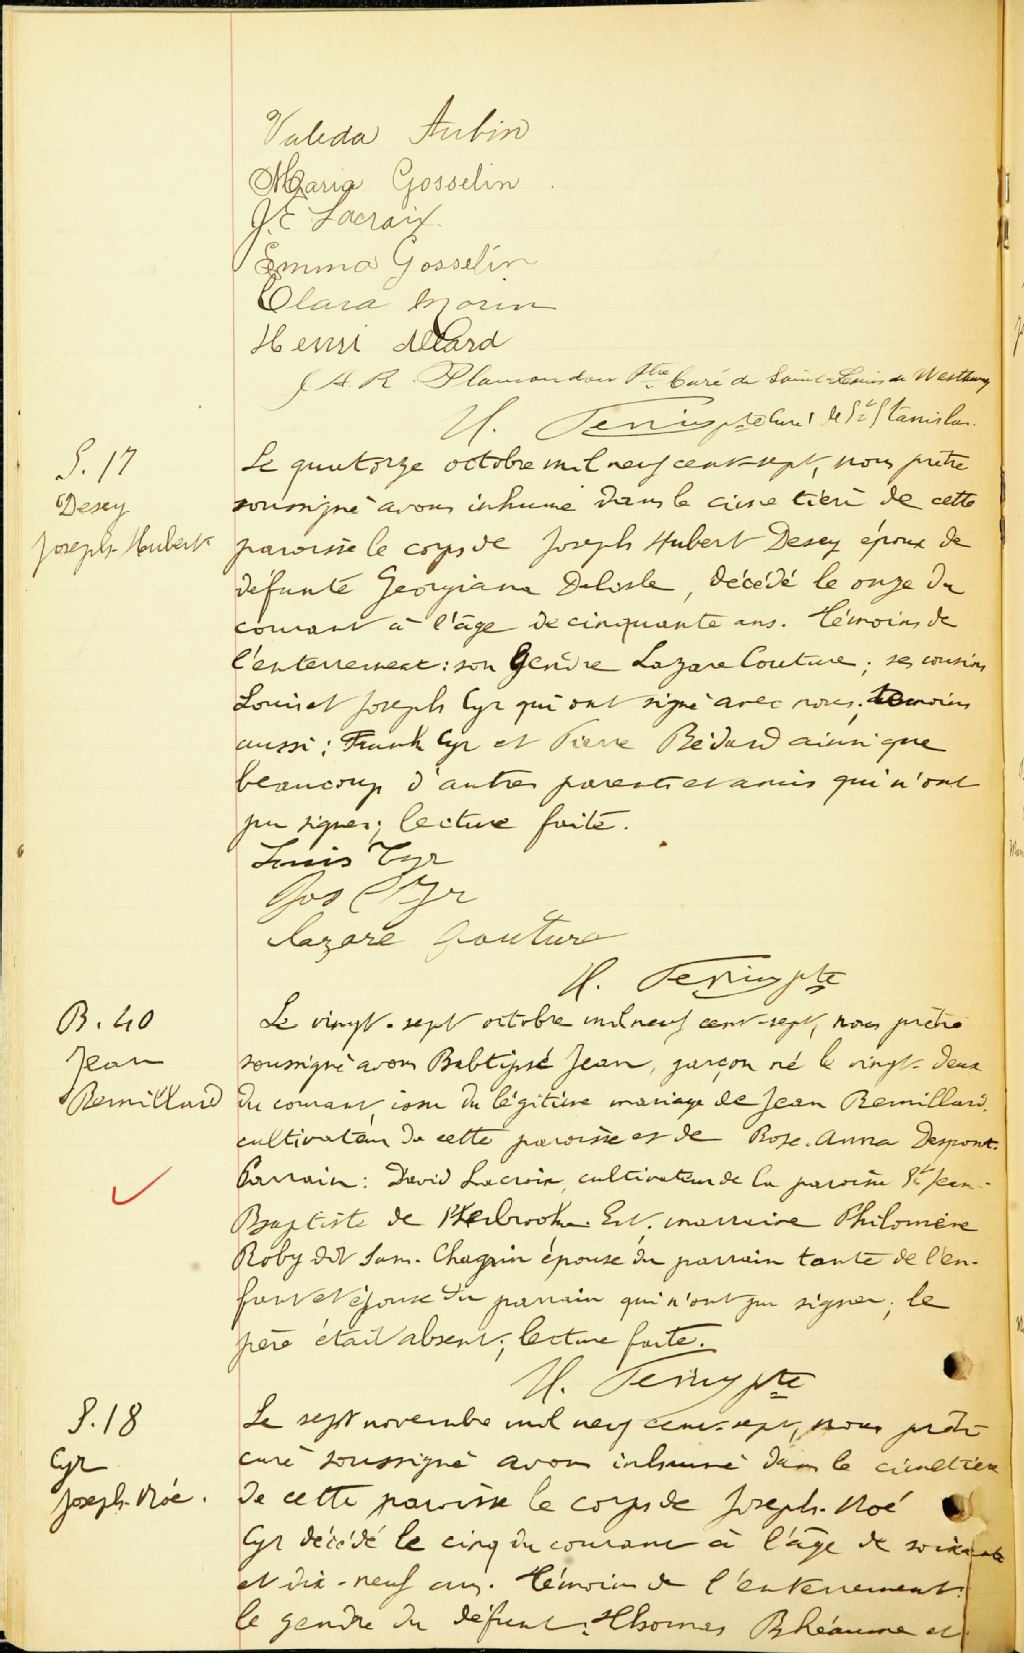 Valeda Aubin
Maria Gosselin
J. E. Lacroix
Emma Gosselin
Clara Morin
Henri Allard
J. A. R. Plamondon Ptre Curé de Saint-Louis de Westbury
H. Ptre Curé de St Stanislas.
S. 17
Desey
Joseph-Hubert
Le quatorze octobre mil neuf cent-sept, nous prêtre
soussigné avons inhumé dans le cimetière de cette
paroisse le corps de Joseph Hubert Desey époux de
défunte Georgiana Delisle, décédé le onze du
courant à l'âge de cinquante ans. Témoins de
l'enterrement: son Gendre Lazare Couture; ses cousins
Louis et Joseph Cyr qui ont signé avec nous; témoins
aussi: Frank Cyr et Pierre Bédard ainsi que
beaucoup d'autres parents et amis qui n'ont
pu signer; lecture faite.
Louis Cyr
Jos Cyr
Lazare Couture
H. ptre
B. 40
Jean
Remillard
Le vingt-sept octobre mil neuf cent-sept, nous prêtre
soussigné avons Babtipsé Jean, garçon né le vingt-deux
du courant issu du légitime mariage de Jean Remillard,
cultivateur de cette paroisse et de Rose-Anna Despont.
Parrain: David Lacroix, cultivateur de la paroisse St Jean-
Baptiste de Est. marraine Philomène
Roby dit Sans-Chagrin épouse du parrain tante de l'en-
fant et épouse du parrain qui n'ont pu signer; le
père était absent; lecture faite.
H. ptre
S. 18
Cyr
Joseph-Noé.
Le sept novembre mil neuf cent-sept, nous prêtre
curé soussigné avons inhumé dans le cimetière
de cette paroisse le corps de Joseph-Noé
Cyr décédé le cinq du courant à l'âge de soixante
et dix-neuf ans. Témoins de l'enterrement:
le gendre du défunt: Thomas Rhéaume et